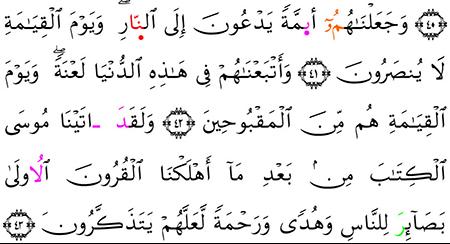 ﴿٤٠﴾ وَجَعَلْنَٰهُمُۥٓ أَىِٕمَّةً يَدْعُونَ إِلَى ٱلنّ۪ارِۖ وَيَوْمَ ٱلْقِيَٰمَةِ
لَا يُنصَرُونَ ﴿٤١﴾ وَأَتْبَعْنَٰهُمْ فِى هَٰذِهِ ٱلدُّنْيَا لَعْنَةًۖ وَيَوْمَ
ٱلْقِيَٰمَةِ هُم مِّنَ ٱلْمَقْبُوحِينَ ﴿٤٢﴾ وَلَقَدَ ـ اتَيْنَا مُوسَى
ٱلْكِتَٰبَ مِنۢ بَعْدِ مَآ أَهْلَكْنَا ٱلْقُرُونَ ٱلُاولَىٰ
بَصَآئِرَ لِلنَّاسِ وَهُدًى وَرَحْمَةً لَّعَلَّهُمْ يَتَذَكَّرُونَ ﴿٤٣﴾